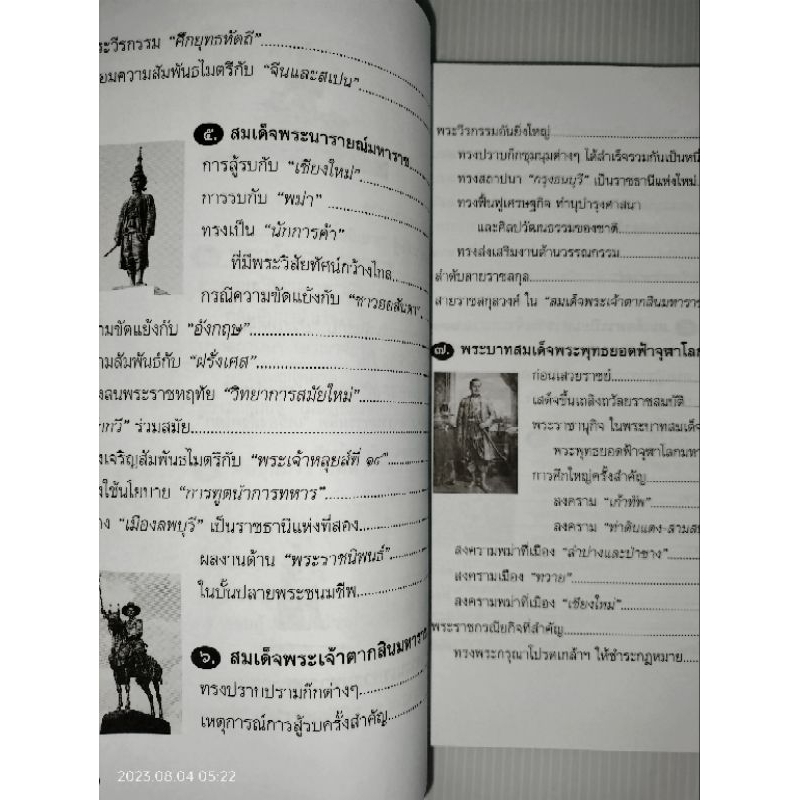 ระวีรกรรม “ศึกยุทธหัตถี”
อมความสัมพันธไมตรีกับ “จีนและสเปน”
๕. สมเด็จพระนารายณ์มหาราช
การสู้รบกับ “เชียงใหม่”
การรบกับ “พม่า”
ทรงเป็น “นักการค้า”
ที่มีพระวิสัยทัศน์กว้างไกล
กรณีความขัดแย้งกับ “ชาวฮอลันดา”
ามขัดแย้งกับ “อังกฤษ”
ามสัมพันธ์กับ “ฝรั่งเศส”
งสนพระราชหฤทัย “วิทยาการสมัยใหม่”
กกวี” ร่วมสมัย
งเจริญสัมพันธไมตรีกับ “พระเจ้าหลุยส์ที่ ๑๔”
งใช้นโยบาย “การทูตนำการทหาร”
าง “เมืองลพบุรี” เป็นราชธานีแห่งที่สอง
ผลงานด้าน “พระราชนิพนธ์”
ในบั้นปลายพระชนมชีพ
๖. สมเด็จพระเจ้าตากสินมหาราช
ทรงปราบปรามก๊กต่างๆ
เหตุการณ์การสู้รบครั้งสำคัญ
พระวีรกรรมอันยิ่งใหญ่
ทรงปราบก๊กชุมนุมต่างๆ ได้สำเร็จรวมกันเป็นหนึ
ทรงสถาปนา “กรุงธนบุรี” เป็นราชธานีแห่งใหม่
ทรงฟื้นฟูเศรษฐกิจ ทำนุบำรุงศาสนา
และศิลปวัฒนธรรมของชาติ
ทรงส่งเสริมงานด้านวรรณกรรม
ลำดับสายราชสกุล
สายราชสกุลวงศ์ ใน “สมเด็จพระเจ้าตากสินมหาราช
๗. พระบาทสมเด็จพระพุทธยอดฟ้าจุฬาโล
ก่อนเสวยราชย์
เสด็จขึ้นเถลิงถวัลยราชสมบัติ
พระราชานุกิจ ในพระบาทสมเด็จ
พระพุทธยอดฟ้าจุฬาโลกมห
การศึกใหญ่ครั้งสำคัญ
สงคราม “เก้าทัพ”
สงคราม “ท่าดินแดง-สามส
สงครามพม่าที่เมือง “ลำปางและป่าซาง”
สงครามเมือง “ทวาย”
สงครามพม่าที่เมือง “เชียงใหม่”
พระราชกรณียกิจที่สำคัญ
ทรงพระกรุณาโปรดเกล้าฯ ให้ชำระกฎหมาย
2023.08.04 05:22